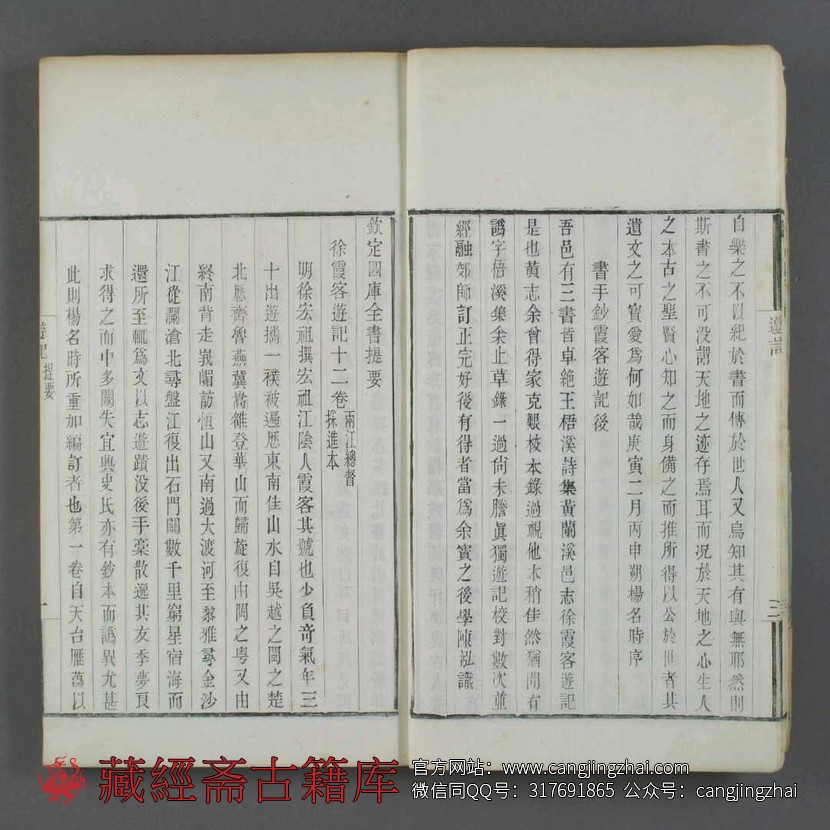 自樂之不以紀於書而傳於世人又烏知其有與無耶然則
斯書之不可没謂天地之迹存焉耳而况於天地之心生人
之本古之聖賢心知之而身備之而推所得以公於世者其
遺文之可寶愛爲何如哉庚寅二月丙申朔楊名時序
書手鈔霞客遊記後
吾邑有三書皆卓絶王梧溪詩集黄蘭溪邑志徐霞客遊記
是也黄志余曾得家克艱校本錄過覡他本稍佳然猶間有
譌字梧溪集余止草錄一過尙未謄眞獨遊記校對數次並
經融郊師訂正完好後有得者當爲余寳之後學陳泓識
遊記
三
欽定四庫全書提要
徐霞客遊記十二卷
兩江總督
採進本
明徐宏祖撰宏祖江陰人霞客其號也少負竒氣年三
十出遊擕一襆被遍歷東南佳山水自吳越之閩之楚
北歷齊魯燕冀嵩雒登華山而歸旋復由閩之粤又由
終南背走峩嵋訪恆山又南過大渡河至黎雅尋金沙
江從瀾滄北尋盤江復出石門關數千里窮星宿海而
還所至輒爲文以志遊蹟没後手稾散逸其友季夢良
求得之而中多闕失宜興史氏亦有鈔本而譌異尤甚
此則楊名時所重加編訂者也第一卷自天台雁蕩以
遊記
提要
一
藏經斋古籍库
官方网站：www.cangjingzhai.com
微信同QQ号：317691865 公众号：cangjingzhai